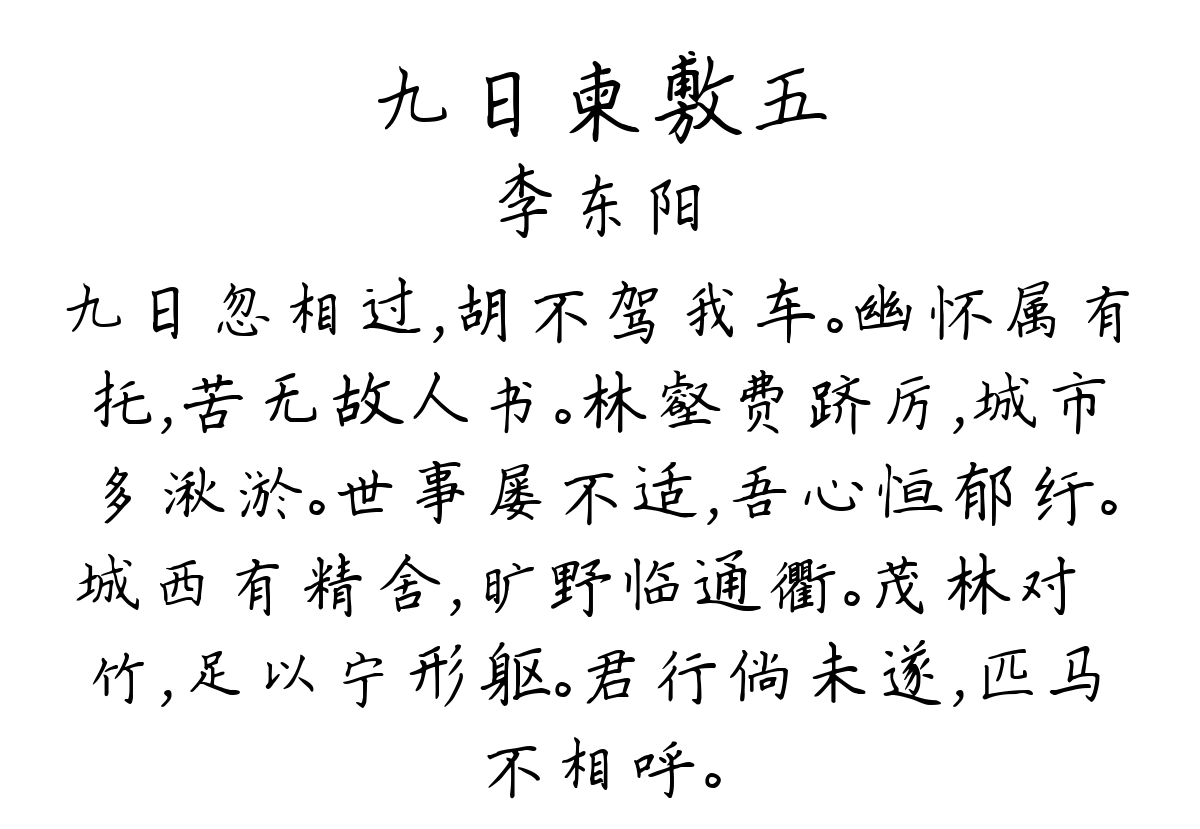 九日柬敷五
李东阳
九日忽相过,胡不驾我车。幽怀属有
托,苦无故人书。林壑费跻厉,城市
多湫淤。世事屡不适,吾心恒郁纡。
城西有精舍,旷野临通衢。茂林对
竹,足以宁形躯。君行倘未遂,匹马
不相呼。